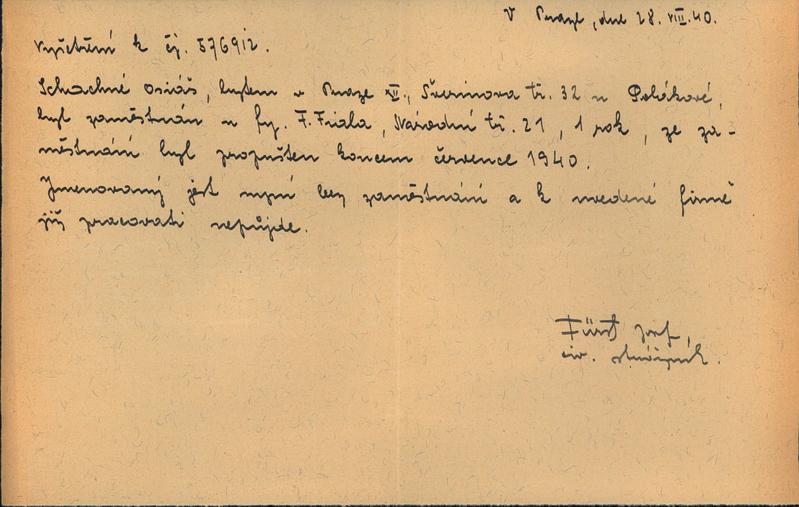 V Praze, dne 28. VIII. 40.
Vyšetření k čj. 5769/2.
Schachně Osiáš, bytem v Praze XII., Švermova tř. 32 u Polákové,
byl zaměstnán u fy. F. Fiala, Národní tř. 21, 1 rok, ze za-
městnání byl propuštěn koncem července 1940.
Jmenovaný jest nyní bez zaměstnání a k uvedené firmě
již pracovati nepůjde.
Fürst Josef,
civ. strážník.